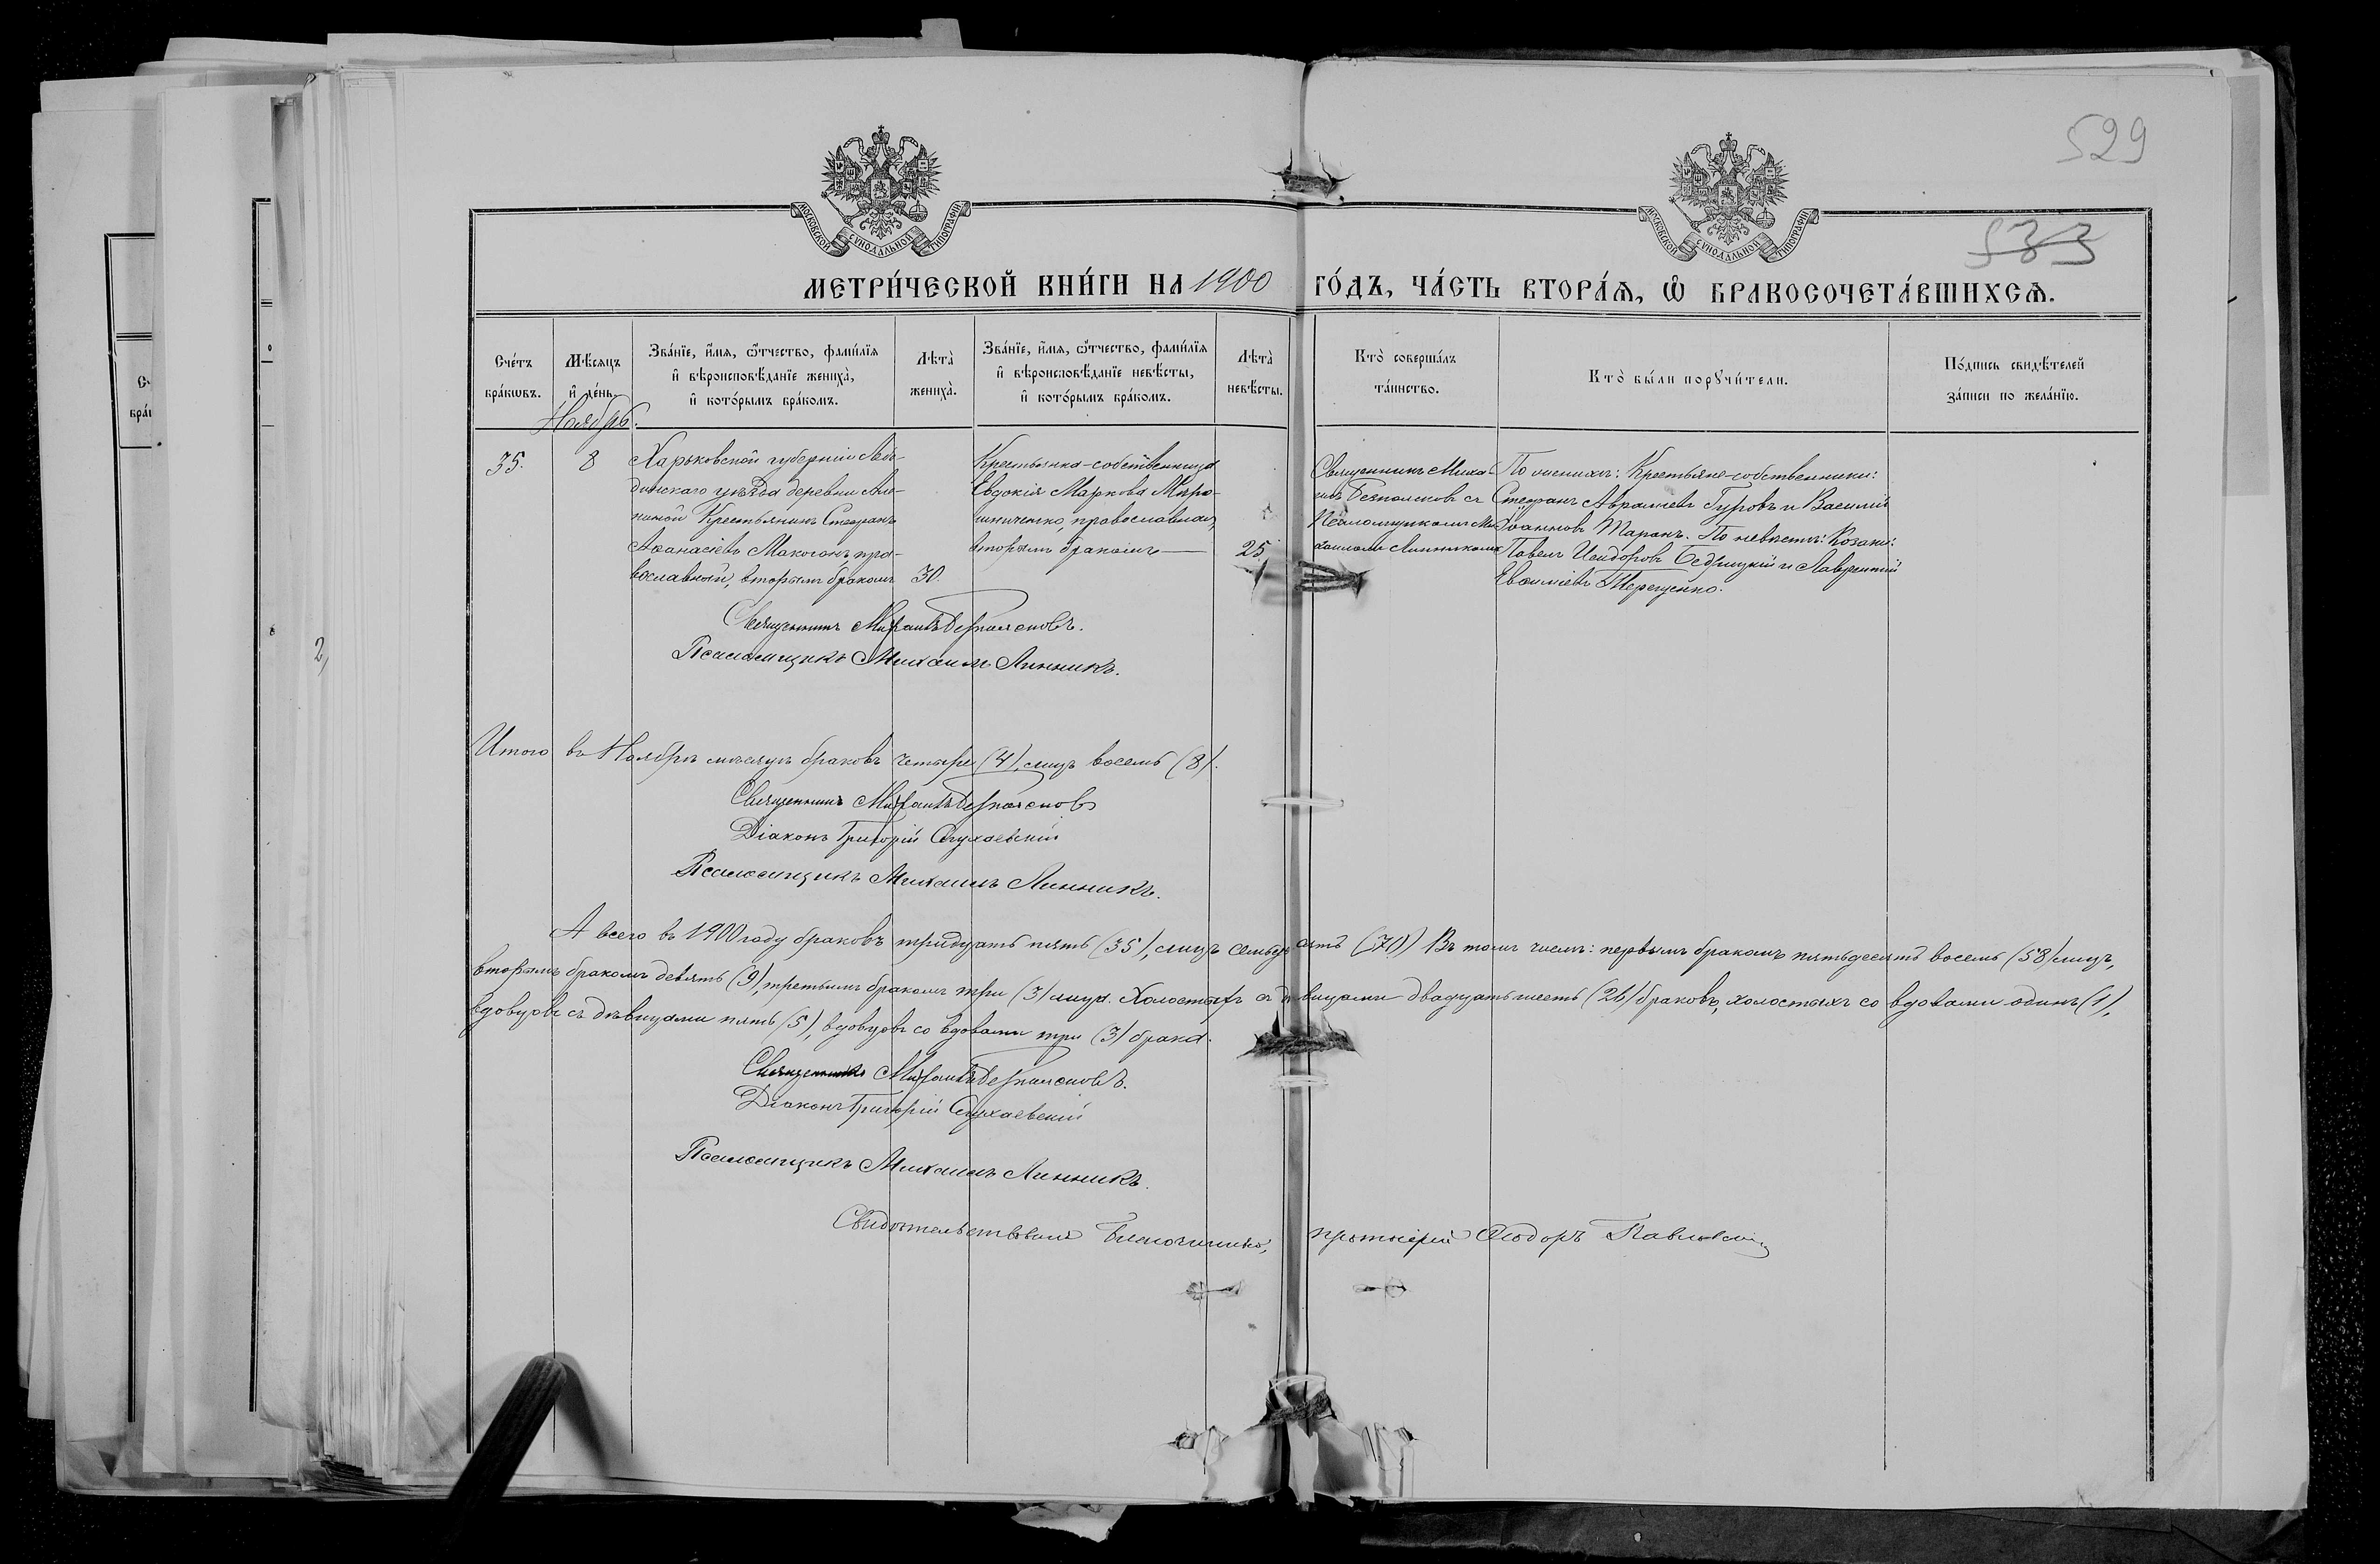 529
533
МОСКОВСКОЙ СѴНОДАЛЬНОЙ ТИПОГРАФІИ
МОСКОВСКОЙ СѴНОДАЛЬНОЙ ТИПОГРАФІИ
МЕТРИ́ЧЕСКОЙ КНИ́ГИ НА 1900 ГО́ДЪ, ЧА́СТЬ ВТОРА́Ѧ, Ѽ БРАКОСОЧЕТА́ВШИХСѦ.
Сче́тъ бра́кѡвъ.
Мѣ́сяцъ и҆ де́нь.
Зва́нїе, и҆́мѧ, ѻ҆́тчество, фами́лїѧ и҆ вѣроисповѣ́данїе жениха̀, и҆ кото́рымъ бра́комъ.
Лѣта̀ жениха̀.
Зва́нїе, и҆́мѧ, ѻ҆́тчество, фами́лїѧ и҆ вѣроисповѣ́данїе невѣ́сты, и҆ кото́рымъ бра́комъ.
Лѣта̀ невѣ́сты.
Кто̀ соверша́лъ та́инство.
Кто̀ бы́ли порꙋчи́тели.
По́дпись свидѣ́телей за́писи по жела́нїю.
Ноябрь.
35.
8
Харьковской губерніи Лебе-
динскаго уѣзда деревни
Крестьянинъ Стефанъ
Аѳанасіевъ Макогонъ, пра-
вославный, вторымъ бракомъ
30.
Крестьянка-собственница
Евдокія Маркова Миро-
шниченко, православная,
вторымъ бракомъ
25
Священникъ Миха-
илъ Безпалсковъ съ
Псаломщикомъ Ми-
хаиломъ Линникомъ
По женихѣ: Крестьяне-собственники:
Стефанъ Авраміевъ Гуровъ и Василій
Іоанновъ Таранъ. По невѣстѣ: Козаки:
Павелъ Исидоровъ Бедрицкій и Лаврентій
Евѳиміевъ Терещенко.
Священникъ Михаилъ
Псаломщикъ Михаилъ Линникъ.
Итого въ Ноябрѣ мѣсяцѣ браковъ четыре (4), лицъ восемь (8).
Священникъ Михаилъ
Діаконъ Григорій
Псаломщикъ Михаилъ Линникъ.
А всего въ 1900 году браковъ тридцать пять (35), лицъ семьдесятъ (70) Въ томъ числѣ: первымъ бракомъ пятьдесятъ восемь (58) лицъ,
вторымъ бракомъ девять (9), третьимъ бракомъ три (3) лица. Холостыхъ съ дѣвицами двадцать шесть (26) браковъ, холостыхъ со вдовами одинъ (1),
вдовцовъ съ дѣвицами пять (5), вдовцовъ со вдовами три (3) брака.
Священникъ Михаилъ
Діаконъ Григорій
Псаломщикъ Михаилъ Линникъ.
Свидѣтельствовалъ Благочинный, протоіерей Ѳеодоръ Павловскій